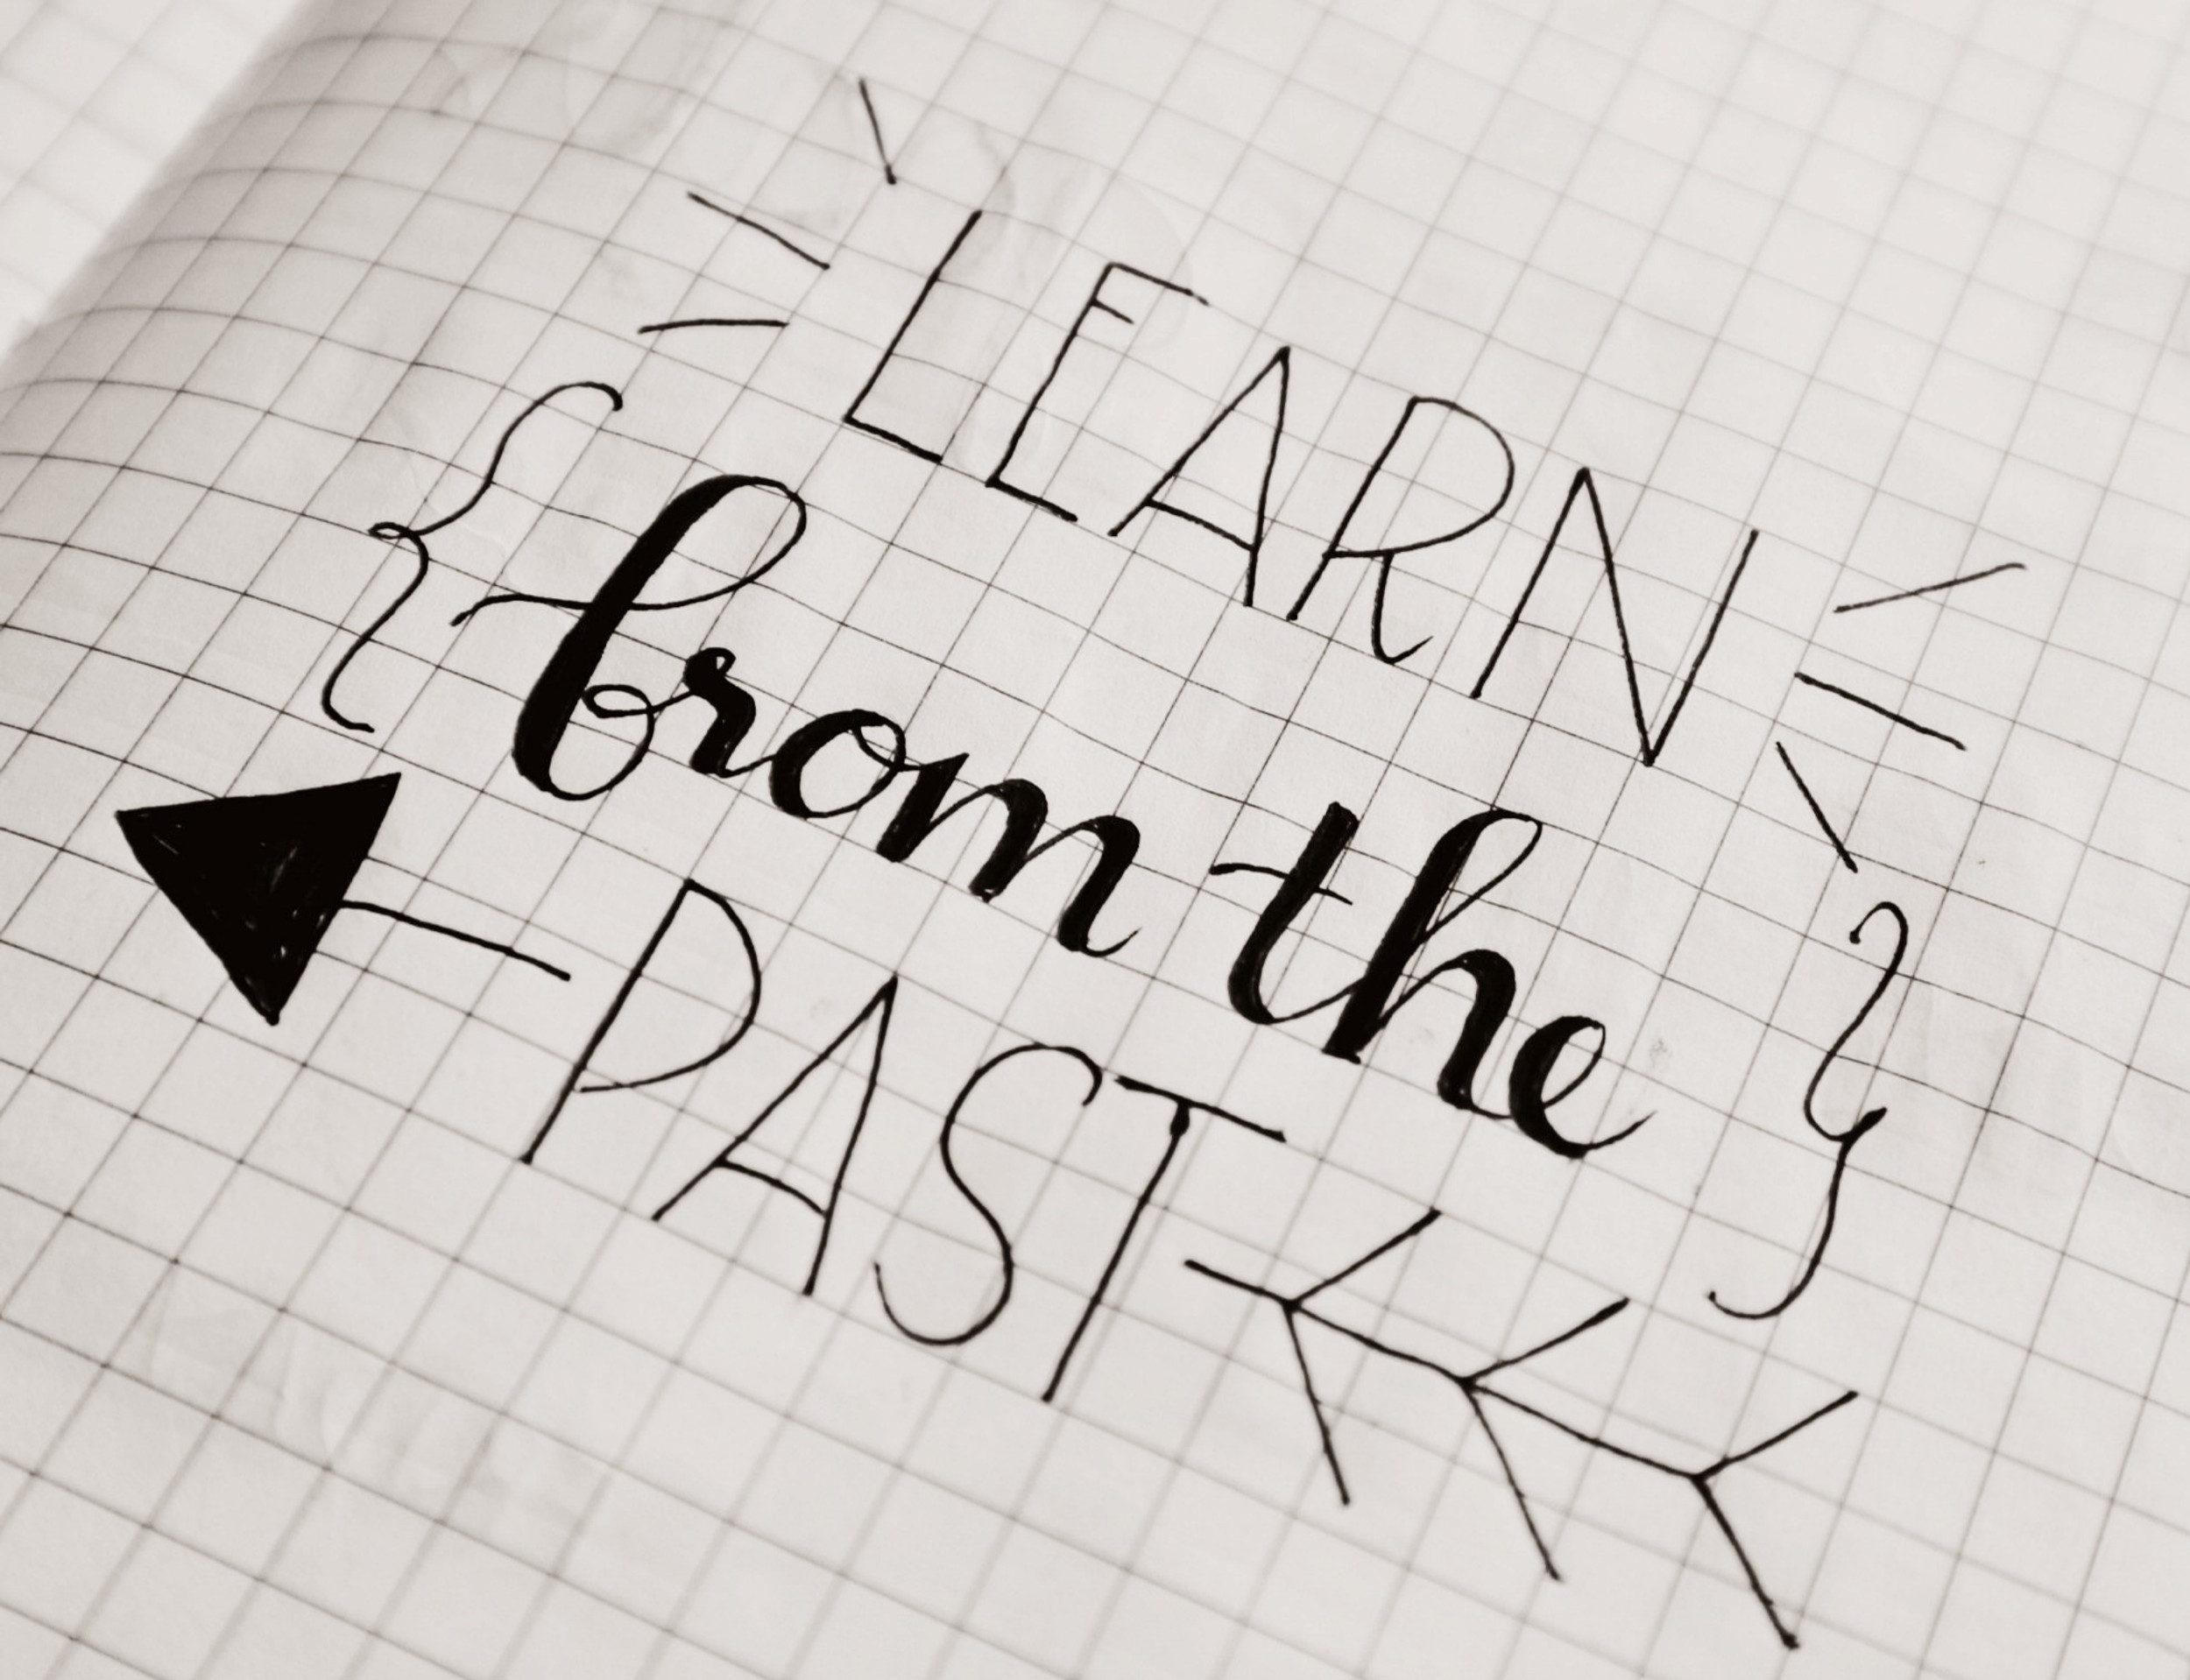 LEARN
from the
PAST